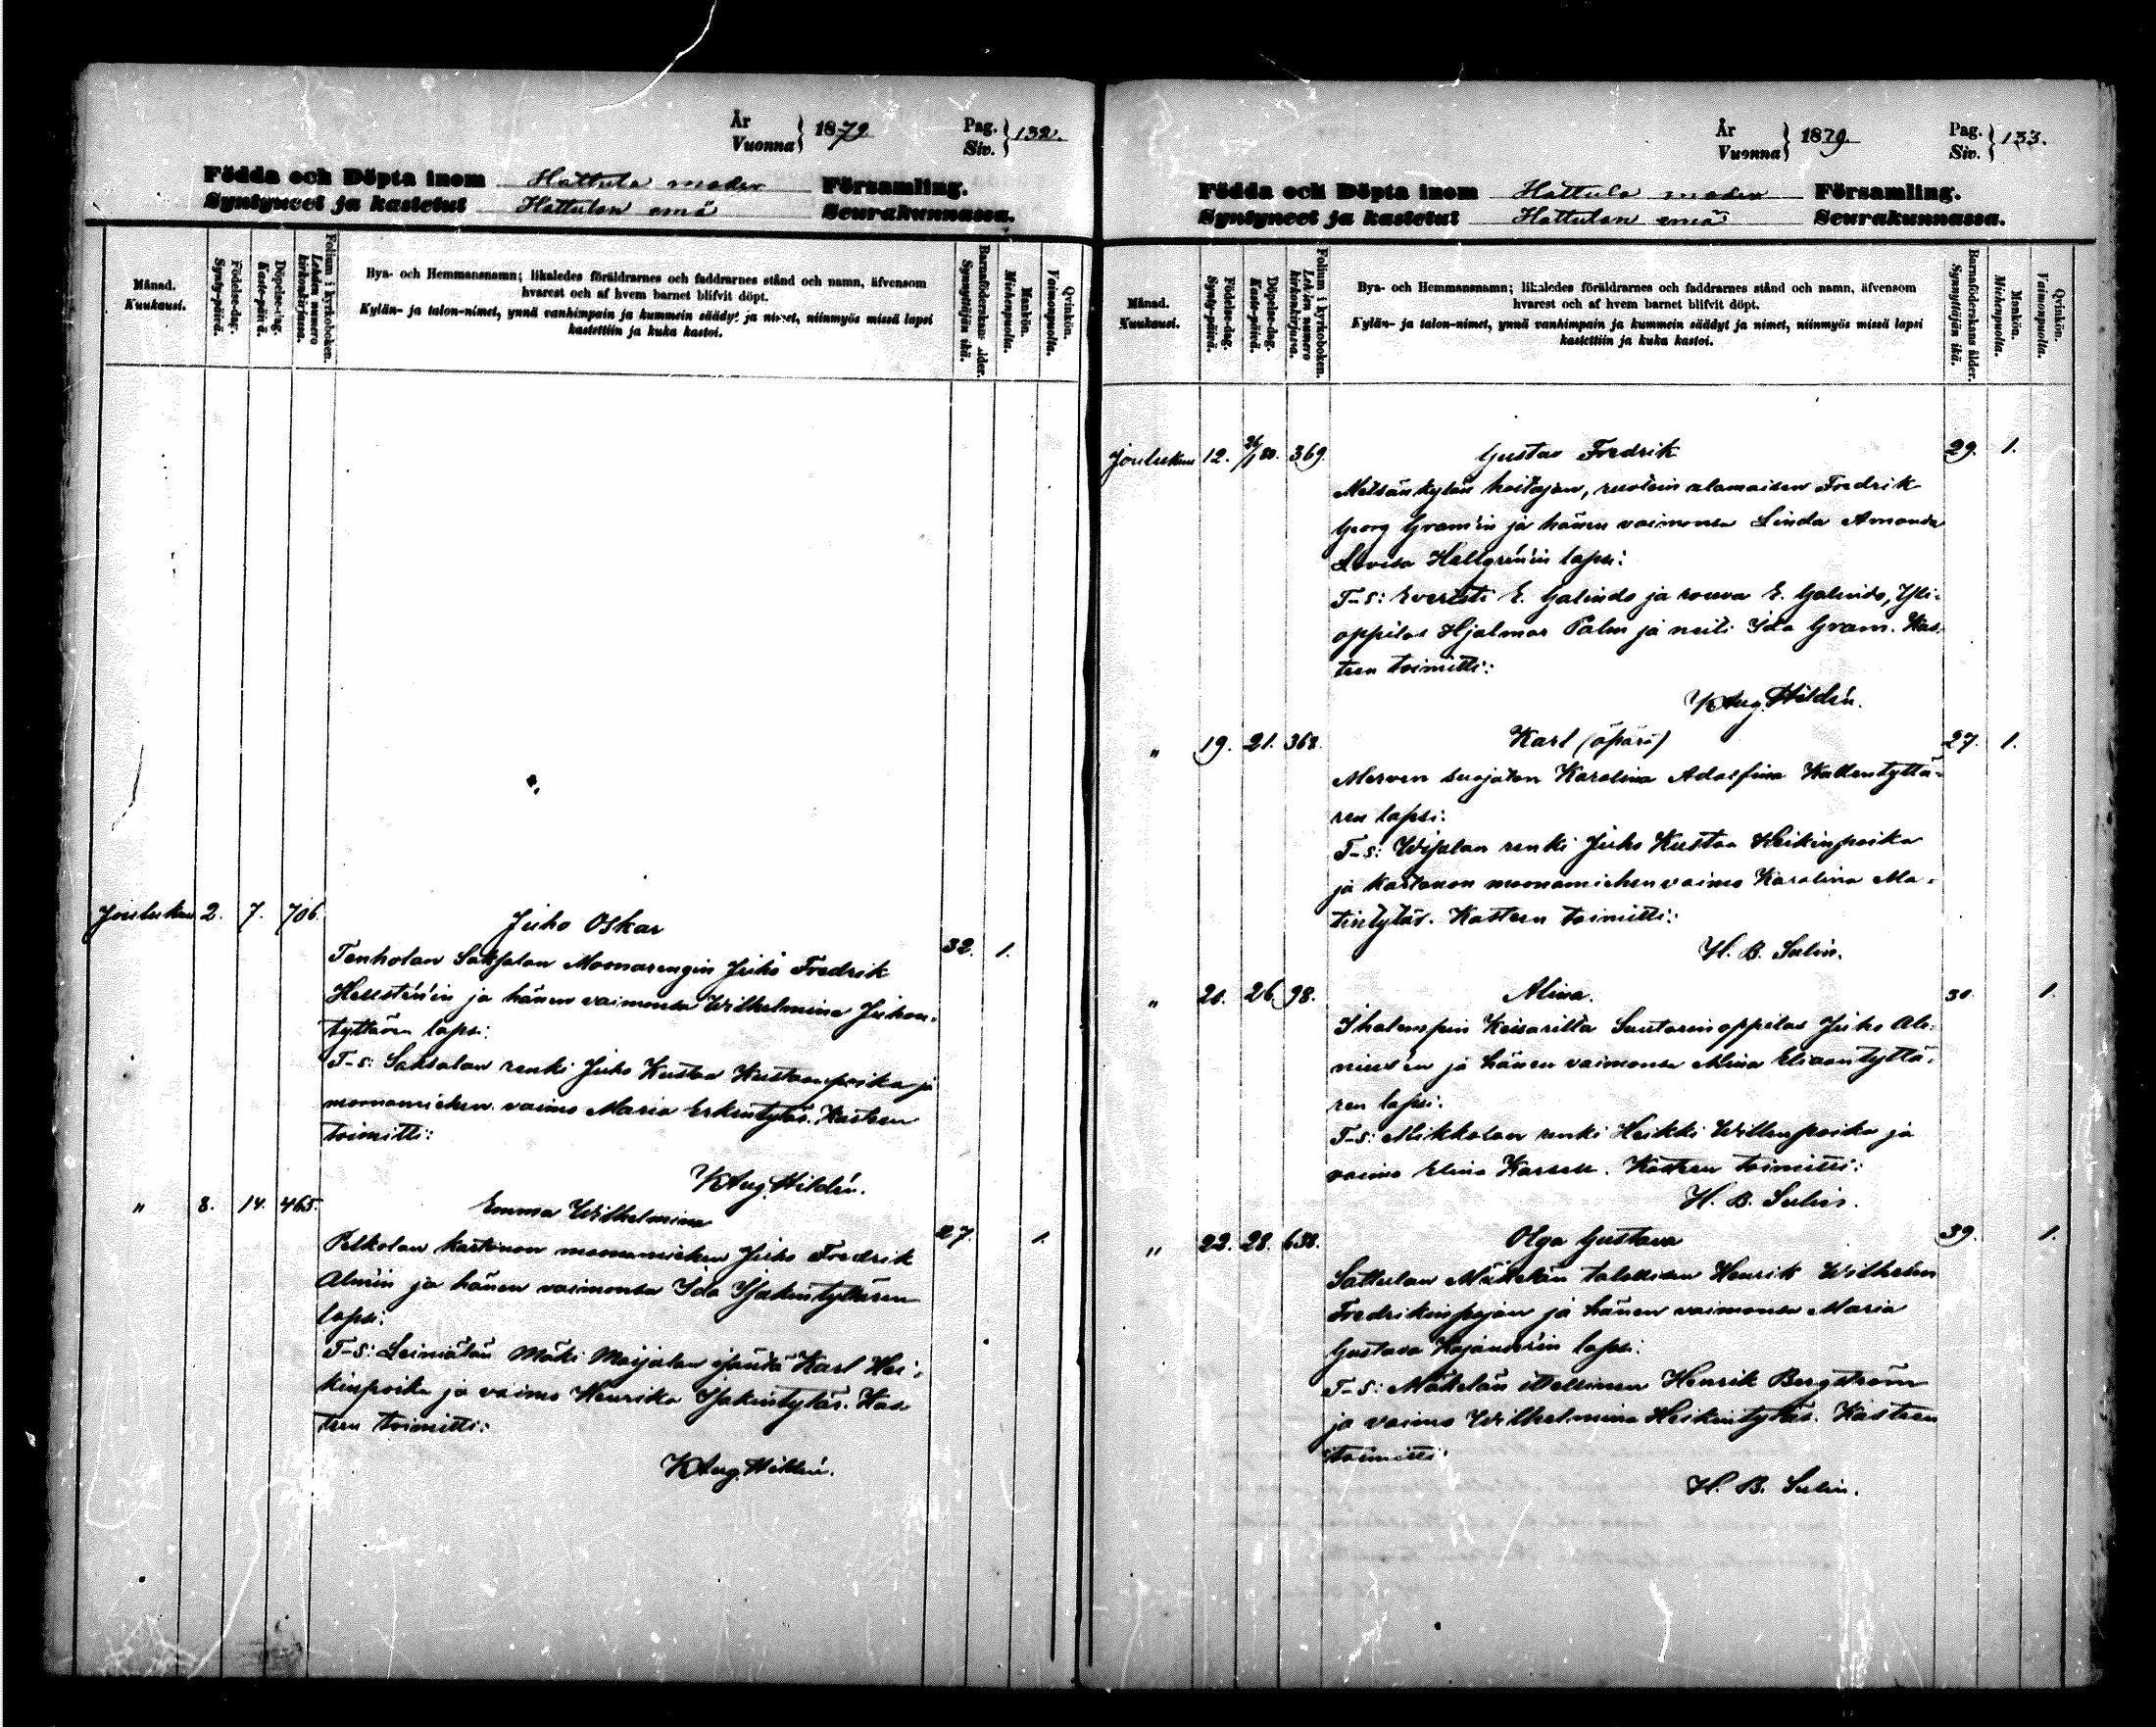 År
Vuonna
1879
Pag.
Siv.
132.
Födda och Döpta inom Hattula moder Församling.
Syntyneet ja kastetut Hattulan emä Seurakunnassa.
Månad.
Kuukausi.
Födelse-dag.
Synty-päivä.
Döpelse-dag.
Kaste-päivä.
Folium i kyrkoboken.
Lehden numero kirkonkirjassa.
Bya- och Hemmansnamn; likaledes föräldrarnes och faddrarnes stånd och namn, äfvensom
hvarest och af hvem barnet blifvit döpt.
Kylän- ja talon-nimet, ynnä vanhimpain ja kummein säädyt ja nimet, niinmyös missä lapsi
kastettiin ja kuka kastoi.
Barnaföderskans ålder.
Synnyttäjän ikä.
Mankön.
Miehenpuolta.
Qvinkön.
Vaimonpuolta.
Joulukuu 2. 7. 706. Juho Oskar 32. 1.
Tenholan Saksalan Moonarengin Juho Fredrik
Hellsténin ja hänen vaimonsa Wilhelmina Juhon-
tyttären lapsi:
T-s: Saksalan renki Juho Kustaa Kustaanpoika ja
moonamiehen vaimo Maria Erkintytär. Kasteen
toimitti:
K Aug. Hildén.
" 8. 14. 465. Emma Wilhelmina 27. 1.
Pelkolan kartanon moonamiehen Juho Fredrik
Almin ja hänen vaimonsa Ida Isakintyttären
lapsi:
T-s: Leiniälän Mäki Maijalan isäntä Karl Hei-
kinpoika ja vaimo Henrika Isakintytär. Kas-
teen toimitti:
K Aug. Hildén.
År
Vuonna
1879
Pag.
Siv.
133.
Födda och Döpta inom Hattula moder Församling.
Syntyneet ja kastetut Hattulan emä Seurakunnassa.
Månad.
Kuukausi.
Födelse-dag.
Synty-päivä.
Döpelse-dag.
Kaste-päivä.
Folium i kyrkoboken.
Lehden numero kirkonkirjassa.
Bya- och Hemmansnamn; likaledes föräldrarnes och faddrarnes stånd och namn, äfvensom
hvarest och af hvem barnet blifvit döpt.
Kylän- ja talon-nimet, ynnä vanhimpain ja kummein säädyt ja nimet, niinmyös missä lapsi
kastettiin ja kuka kastoi.
Barnaföderskans ålder.
Synnyttäjän ikä.
Mankön.
Miehenpuolta.
Qvinkön.
Vaimonpuolta.
Joulukuu 12. 26/1 80. 369. Gustav Fredrik 29. 1.
Metsänkylän hoitajan, ruotsin alamaisen Fredrik
Georg Gram'in ja hänen vaimonsa Linda Amanda
Lovisa Hallgrénin lapsi:
T-s: Eversti E. Galindo ja rouva E. Galindo, Yli-
oppilas Hjalmar Palm ja neiti Ida Gram. Kas-
teen toimitti:
K Aug. Hildén.
" 19. 21. 368. Karl (äpärä) 27. 1.
Merven suojaton Karolina Adolfina Kallentyttä-
ren lapsi:
T-s: Wijalan renki Juho Kustaa Heikinpoika
ja kartanon moonamiehen vaimo Karolina Ma-
tintytär. Kasteen toimitti:
H. B. Sulin.
" 21. 26. 98. Alina. 30. 1.
Ihalempin Keisarilta Suutarinoppilas Juho Ale-
niusen ja hänen vaimonsa Miina Eliaantyttä-
ren lapsi.
T-s: Mikkolan renki Heikki Willenpoika ja
vaimo Elina Karsell. Kasteen toimitti:
H. B. Sulin.
" 22. 28. 638. Olga Gustava 39. 1.
Sattulan Mäkelän talollisen Henrik Wilhelm
Fredrikinpojan ja hänen vaimonsa Maria
Gustava Kajanderin lapsi:
T-s: Mäkelän itsellinen Henrik Bergström
ja vaimo Wilhelmina Heikintytär. Kasteen
toimitti:
H. B. Sulin.